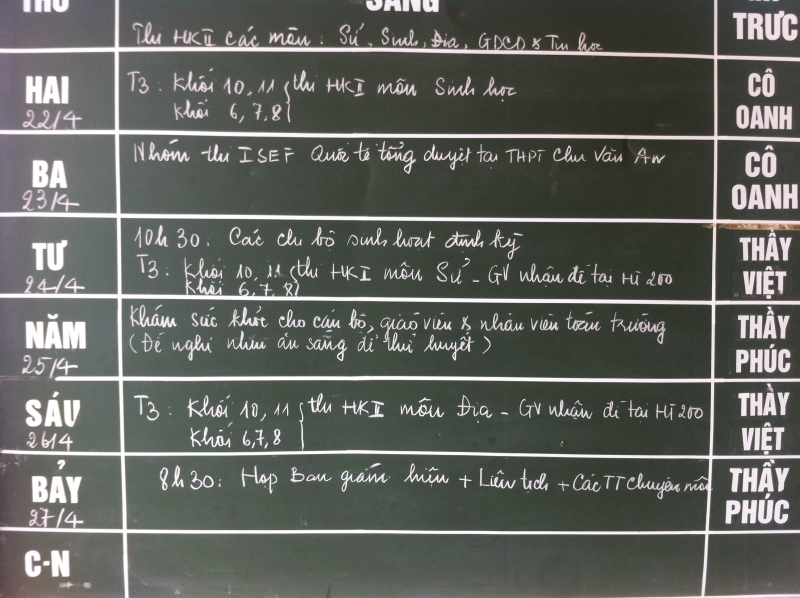 THỨ SÁNG TRỰC
Thi HKII các môn: Sử, Sinh, Địa, GDCD & Tin học
HAI 22/4
T3: Khối 10, 11 { thi HKII môn Sinh học
Khối 6, 7, 8
CÔ OANH
BA 23/4
Nhóm thi ISEF Quốc tế tổng duyệt tại THPT Chu Văn An
CÔ OANH
TƯ 24/4
10h 30: Các chi bộ sinh hoạt định kỳ
T3: Khối 10, 11 { thi HKII môn Sử - GV nhận đề tại HT 200
Khối 6, 7, 8
THẦY VIỆT
NĂM 25/4
Khám sức khỏe cho cán bộ, giáo viên & nhân viên toàn trường
(Đề nghị nhịn ăn sáng để thử huyết)
THẦY PHÚC
SÁU 26/4
T3: Khối 10, 11 { thi HKII môn Địa - GV nhận đề tại HT 200
Khối 6, 7, 8
THẦY VIỆT
BẢY 27/4
8h 30: Họp Ban giám hiệu + Liên tịch + Các TT chuyên môn
THẦY PHÚC
C-N